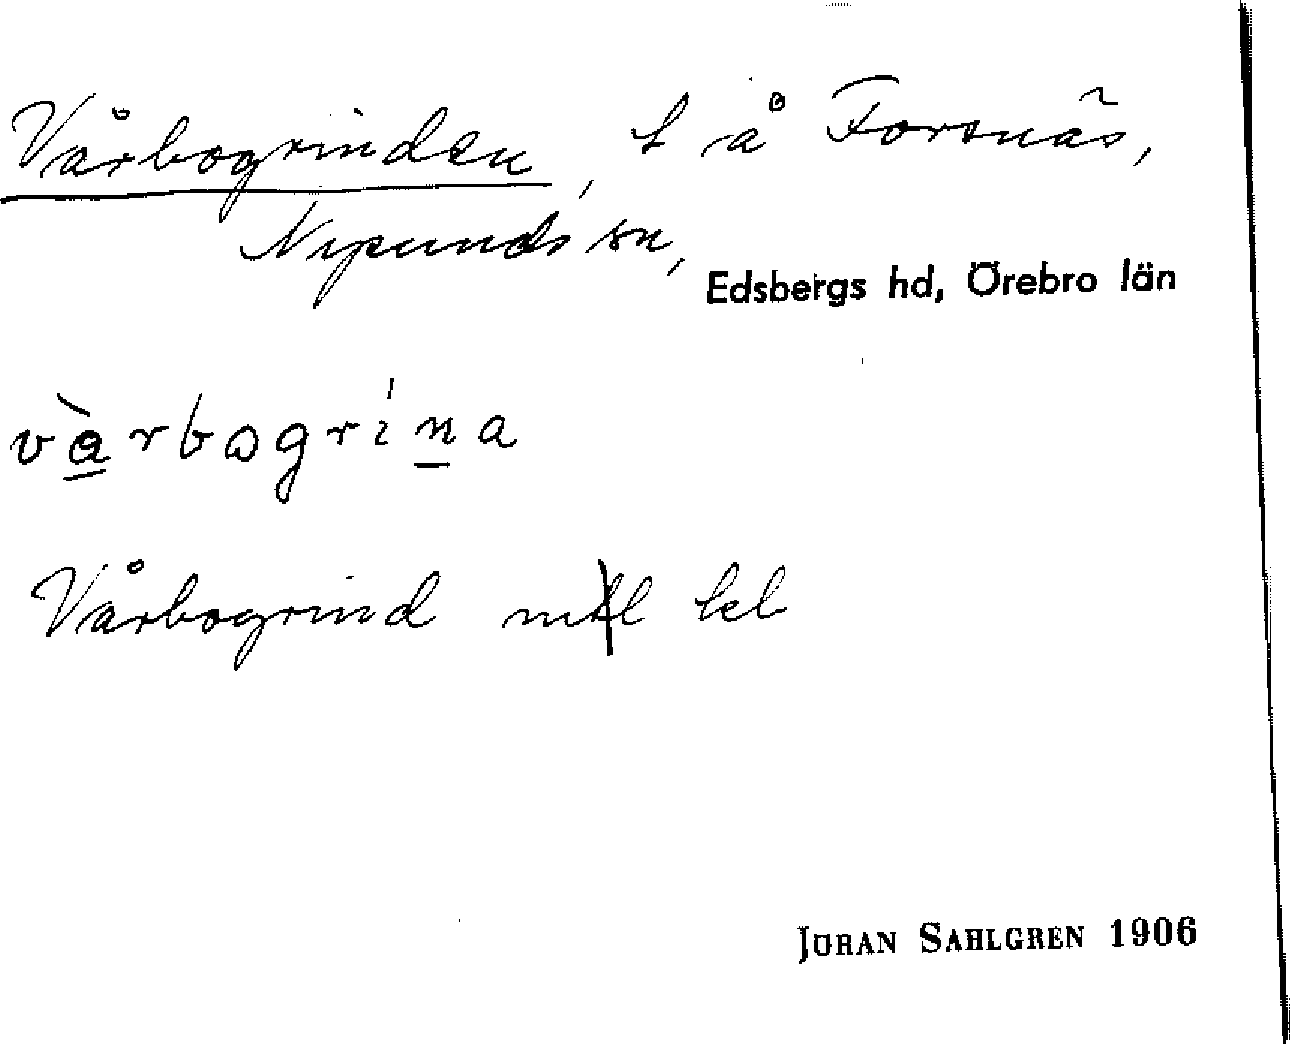 Vårbogrinden, t å Forsnäs,
Nysunds sn,
Edsbergs hd, Örebro län
vàrbogrina
Vårbogrind mtl lel
JÖRAN SAHLGREN 1906